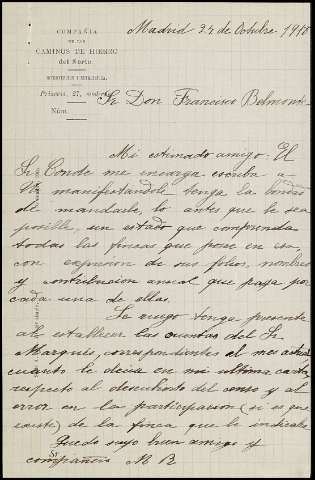 COMPAÑIA
DE LOS
CAMINOS DE HIERRO
del Norte
Princesa, 27,
Núm.
Madrid 24 de Octubre 1910
Sr Don Francisco Belmonte
Mi estimado amigo: El
Sr Conde me encarga escriba a
V. manifestandole tenga la bondad
de mandarle, lo antes que le sea
posible, un estado que comprenda
todas las fincas que posee en esa,
con expresion de sus folios, nombres
y contribucion anual que paga por
cada una de ellas.
Le ruego tenga presente
al establecer las cuentas del Sr
Marqués, correspondientes al mes actual
cuanto le decia en mi ultima carta
respecto al descubierto del censo y al
error en la participacion (si es que
existe) de la finca que le indicaba
Quedo suyo buen amigo y
compañero M R